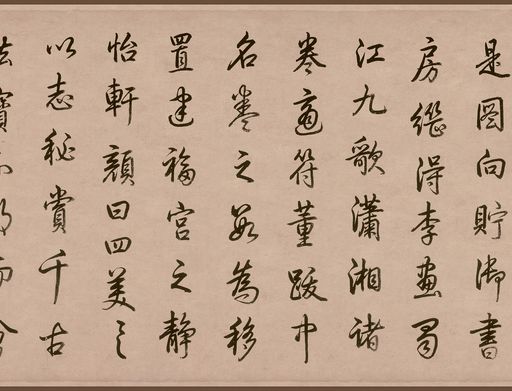 是圖向貯御書
房繼得李畫蜀
江九歌瀟湘諸
卷適符董跋中
名卷之數為移
置建福宮之靜
怡軒顏曰四美具
以志秘賞千古
法寶